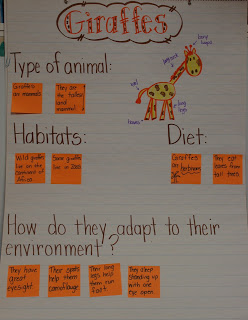 Giraffes
Type of animal:
Giraffes
are mammals
They are
the tallest
land
mammal.
long
tongue
long
legs
tail
hooves
Habitats:
Diet:
Wild giraffes
live on the
continent of
Africa
Some giraffes
live in zoos
Giraffes
are
herbivores
They eat
leaves from
tall trees
How do they adapt to their
environment?
They have
great
eyesight.
Their spots
help them
camouflage.
Their long
legs help
them run
fast.
They sleep
standing up
with one
eye open.